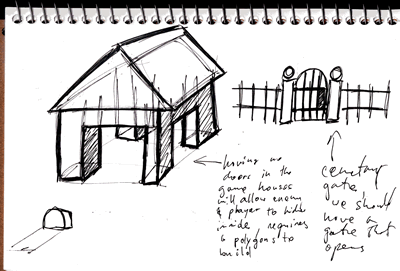 having no
doors in the
game houses
will allow enemy
& player to hide
inside requires
6 polygons to
build
cemetary
gate
we should
have a
gate that
opens